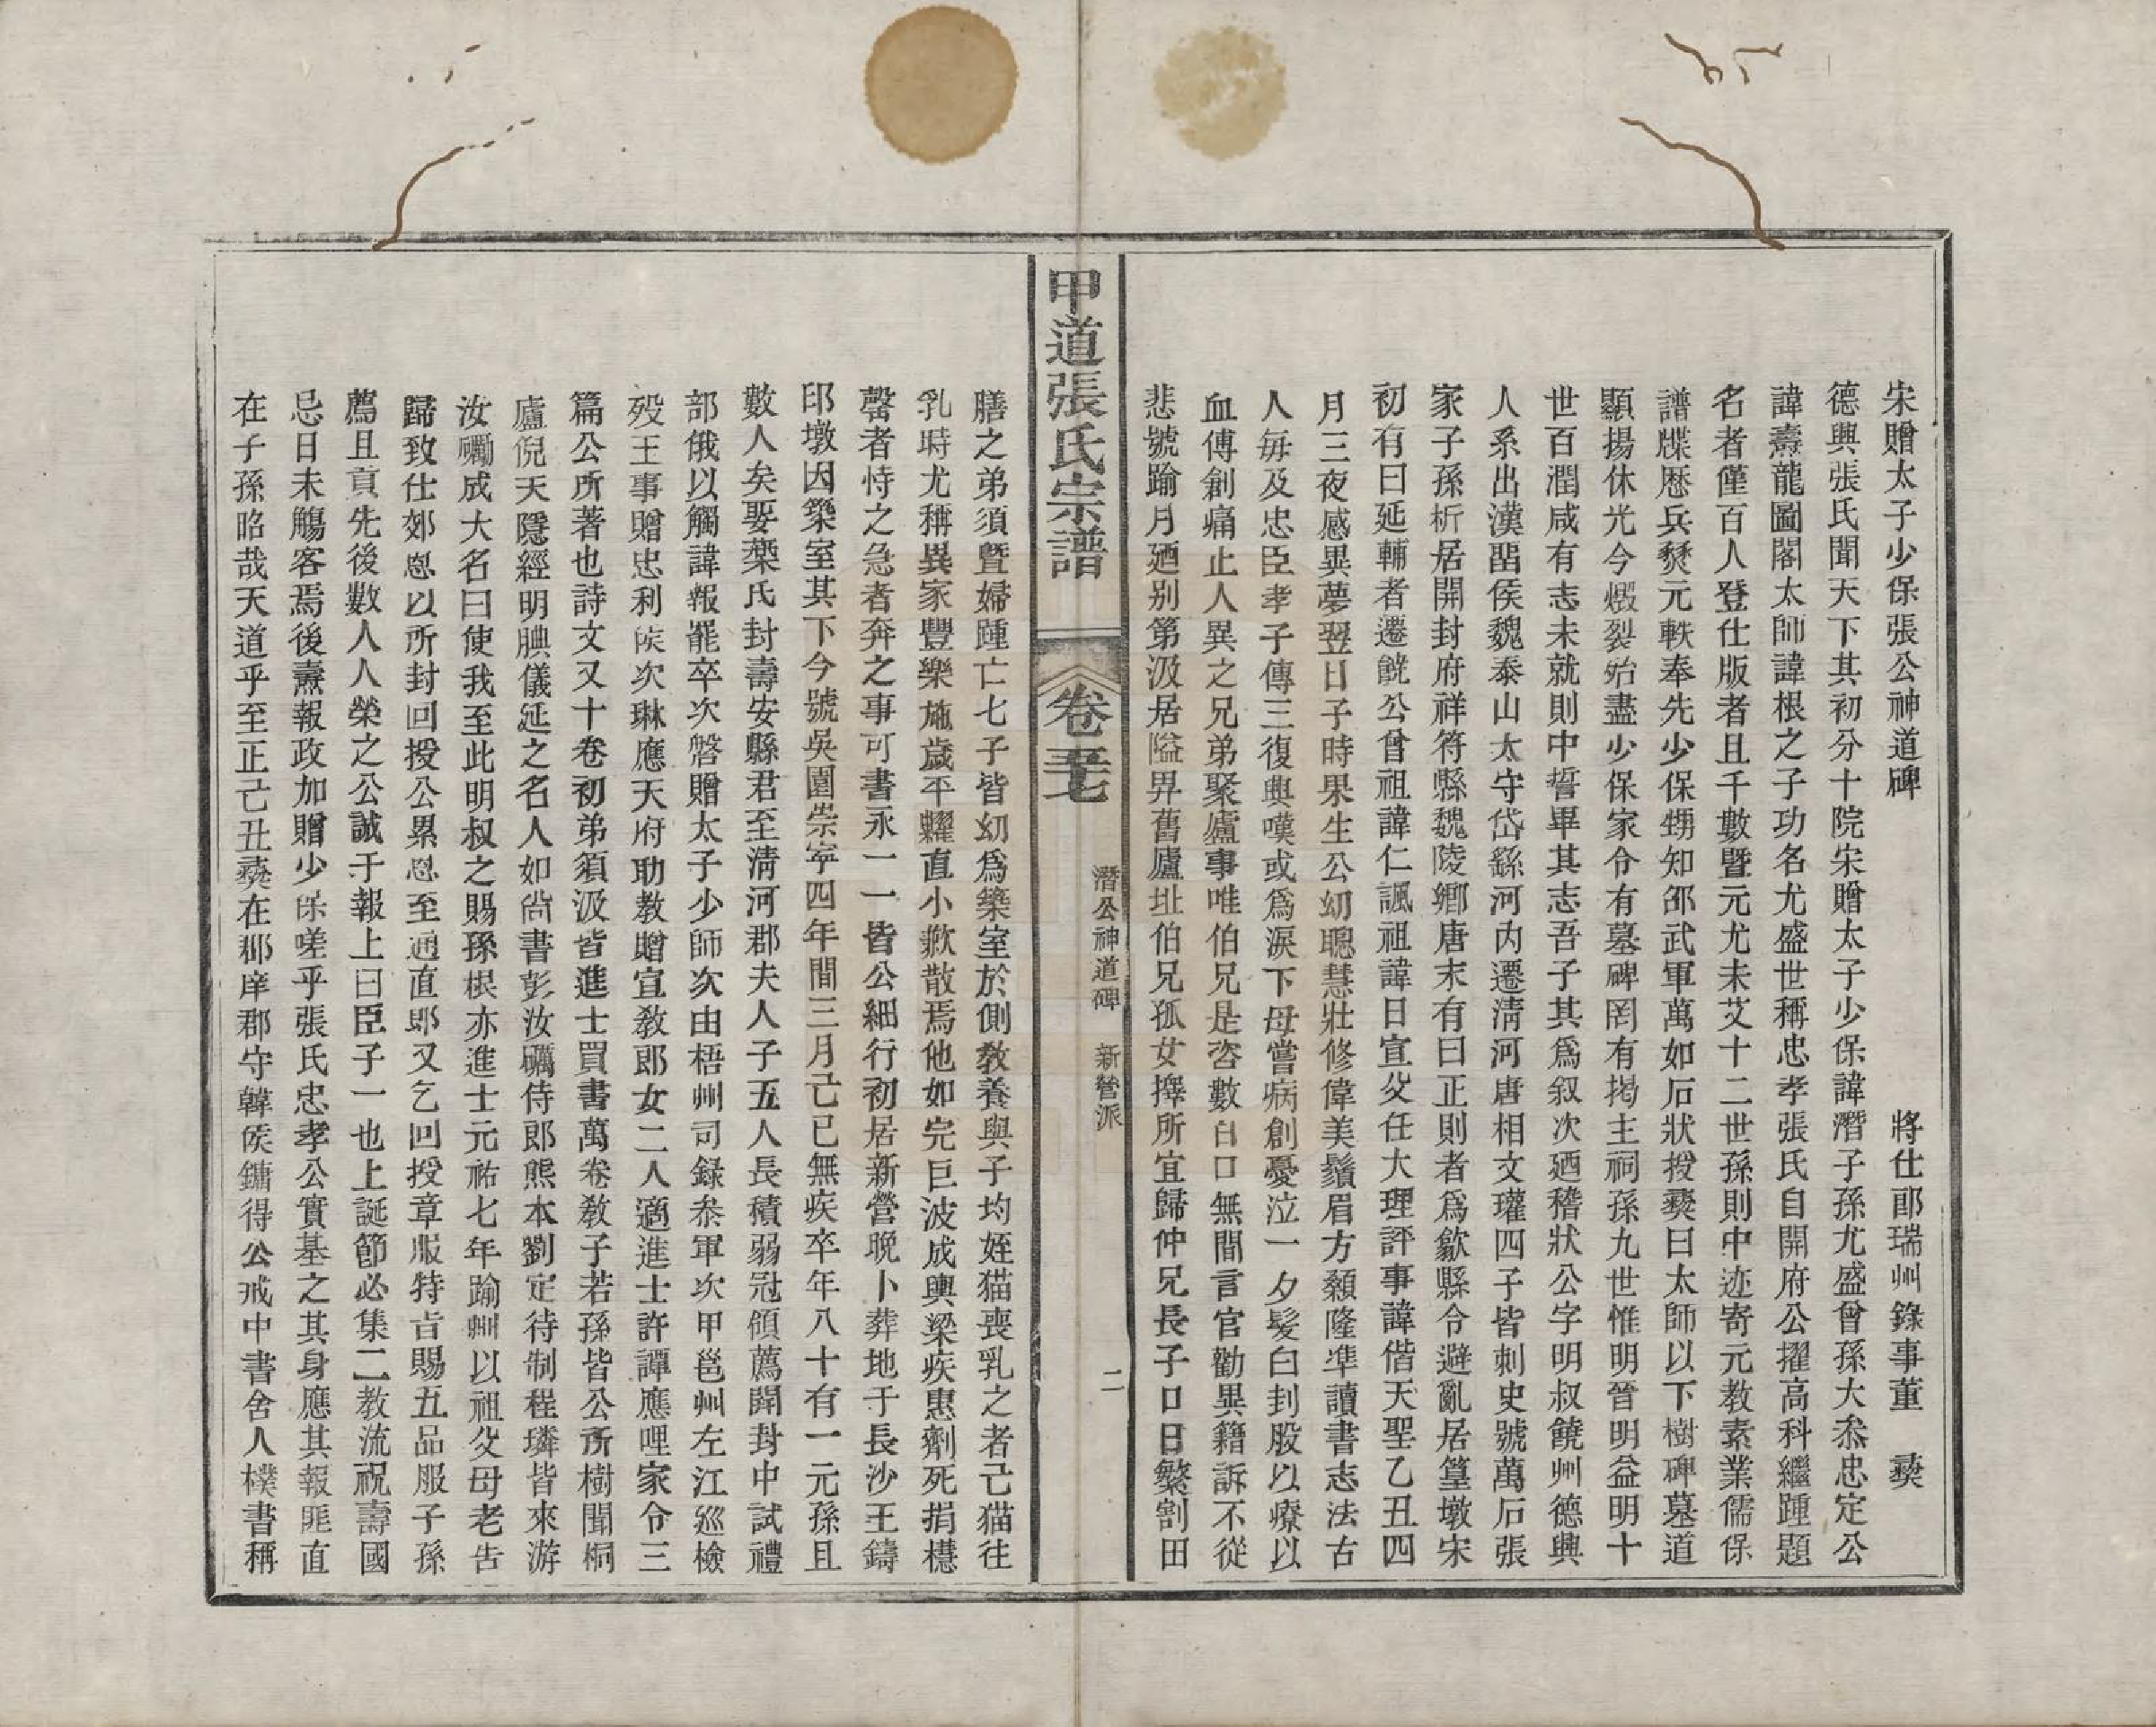 宋贈太子少保張公神道碑　將仕郎瑞州錄事董　㷼
德興張氏聞天下其初分十院宋贈太子少保諱潛子孫尤盛曾孫大叅忠定公
諱燾龍圖閣太師諱根之子功名尤盛世稱忠孝張氏自開府公擢高科繼踵題
名者僅百人登仕版者且千數暨元尤未艾十二世孫則中迹寄元教素業儒保
譜牒歷兵燹元軼奉先少保甥知邵武軍萬如石狀授㷼曰太師以下樹碑墓道
顯揚休光今燬裂殆盡少保家令有墓碑罔有揭主祠孫九世惟明晉明益明十
世百潤咸有志未就則中誓畢其志吾子其爲叙次廼稽狀公字明叔饒州德興
人系出漢畱侯魏泰山太守岱繇河內遷淸河唐相文瓘四子皆刺史號萬石張
家子孫析居開封府祥符縣魏陵鄉唐末有曰正則者爲歙縣令避亂居篁墩宋
初有曰延輔者遷饒公曾祖諱仁諷祖諱日宣父任大理評事諱偕天聖乙丑四
月三夜感異夢翌日子時果生公幼聰慧壯修偉美鬚眉方顙隆準讀書志法古
人每及忠臣孝子傳三復興嘆或爲淚下母嘗病創憂泣一夕髮白刲股以療以
血傅創痛止人異之兄弟聚廬事唯伯兄是咨數百口無間言官勸異籍訴不從
悲號踰月廼别第汲居隘畀舊廬址伯兄孤女擇所宜歸仲兄長子口日繁割田
甲道張氏宗譜　卷五七　潛公神道碑　新營派　二
膳之弟須曁婦踵亡七子皆幼爲築室於側敎養與子均姪猫喪乳之者己猫往
乳時尤稱異家豐樂施歲平糶直小歉散焉他如完巨波成輿梁疾惠劑死捐櫘
罄者恃之急者奔之事可書永一一皆公細行初居新營晩卜葬地于長沙王鑄
印墩因築室其下今號吳園崇寧四年間三月己巳無疾卒年八十有一元孫且
數人矣娶葉氏封壽安縣君至淸河郡夫人子五人長積弱冠傾薦開封中試禮
部俄以觸諱報罷卒次磐贈太子少師次由梧州司錄叅軍次甲邕州左江廵檢
歿王事贈忠利侯次琳應天府助教贈宣敎郎女二人適進士許譚應哩家令三
篇公所著也詩文又十卷初弟須汲皆進士買書萬卷敎子若孫皆公所樹聞桐
廬倪天隱經明腆儀延之名人如尙書彭汝礪侍郎熊本劉定待制程璘皆來游
汝礪成大名曰使我至此明叔之賜孫根亦進士元祐七年踰𡖖以祖父母老告
歸致仕郊恩以所封回授公累恩至通直郎又乞回授章服特旨賜五品服子孫
薦且貢先後數人人榮之公誠于報上曰臣子一也上誕節必集二教流祝壽國
忌日未觴客焉後燾報政加贈少保嗟乎張氏忠孝公實基之其身應其報匪直
在子孫昭哉天道乎至正己丑㷼在郡庠郡守韓侯鏞得公戒中書舍人樸書稱